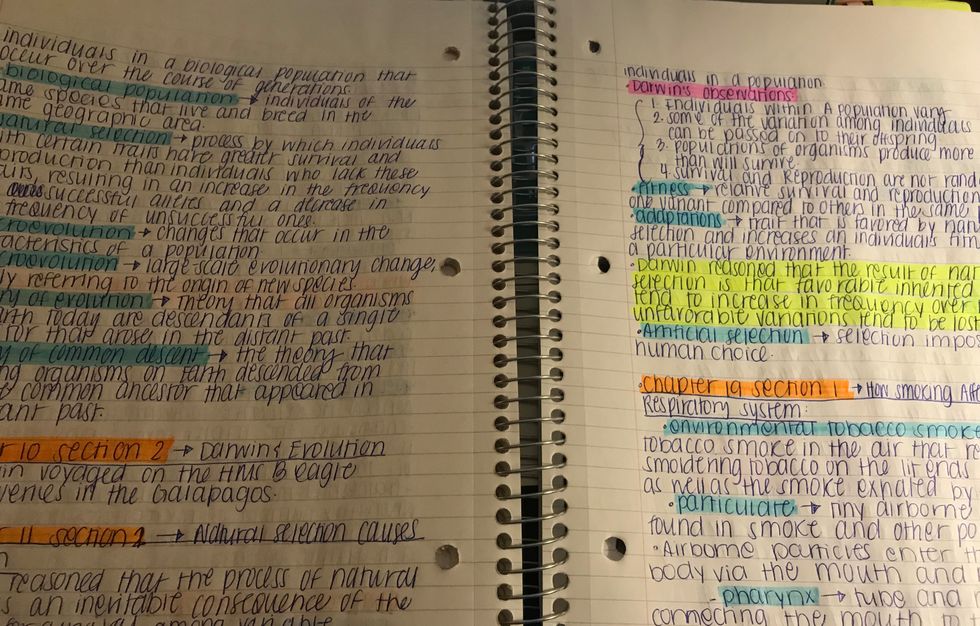 individuals in a biological population that
occur over the course of generations.
biological population → individuals of the
ame species that live and breed in the
ame geographic area.
natural selection → process by which individuals
ith certain traits have greater survival and
production than individuals who lack these
aits, resulting in an increase in the frequency
successful alleles and a decrease in
frequency of unsuccessful ones.
croevolution → changes that occur in the
racteristics of a population
croevolution → large scale evolutionary change,
ly referring to the origin of new species.
ry of evolution → theory that all organisms
arth today are descendants of a single
stor that arose in the distant past.
y of common descent → the theory that
ng organisms on Earth descended from
common ancestor that appeared in
ant past.
r 10 section 2 → Darwin & Evolution
in voyaged on the HMS Beagle
venies in the Galapagos.
r 11 section 2 → Natural selection causes
n
reasoned that the process of natural
s an inevitable consequence of the
for survival among variable
individuals in a population.
• Darwin's observations:
1. Individuals within A population vary
2. some of the variation among individuals
can be passed on to their offspring
3. populations of organisms produce more
than will survive
4. survival and Reproduction are not rand
• fitness → relative survival and reproduction
one variant compared to others in the same
• adaptations → trait that is favored by natu
selection and increases an individuals
a particular environment.
• Darwin reasoned that the result of nat
selection is that favorable inherited
tend to increase in frequency over
unfavorable variations tend to be lost
• Artificial selection → selection impos
human choice.
• Chapter 19 section 1 → How smoking Affe
Respiratory system:
• environmental tobacco smoke
tobacco smoke in the air that re
smoldering tobacco on the lit ends
as well as the smoke exhaled by
• particulate → tiny airborne
found in smoke and other po
• Airborne particles enter t
body via the mouth and
- pharynx → tube and
connecting the mouth to